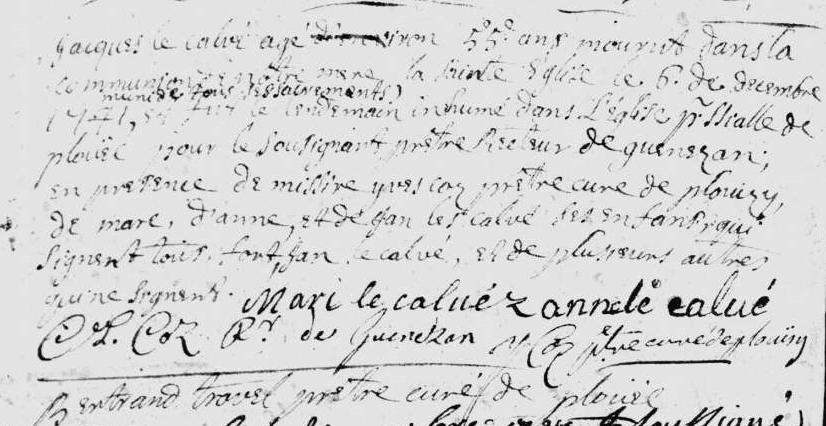 jacques le calvé agé d'environ 55e ans mourut dans la
communion de notre mere la sainte Eglise le 6e de decembre
muni de tous ses sacrements
1741, et fut le lendemain inhumé dans L'Eglise p^rssialle de
ploüec pour le sousignant prêtre Recteur de quenezan;
en presence de missire yves coz prêtre curé de plouizy,
de marc, d'anne, et de jan les calvé ses enfans qui
signent tous, fort jan le calvé, et de plusieurs autres
qui ne signent. Mari le calvéz anne le calvé
L. Coz R^r de Quenezan y Coz p^tre curé de plouisy
Bertrand travel prêtre curé de ploüec